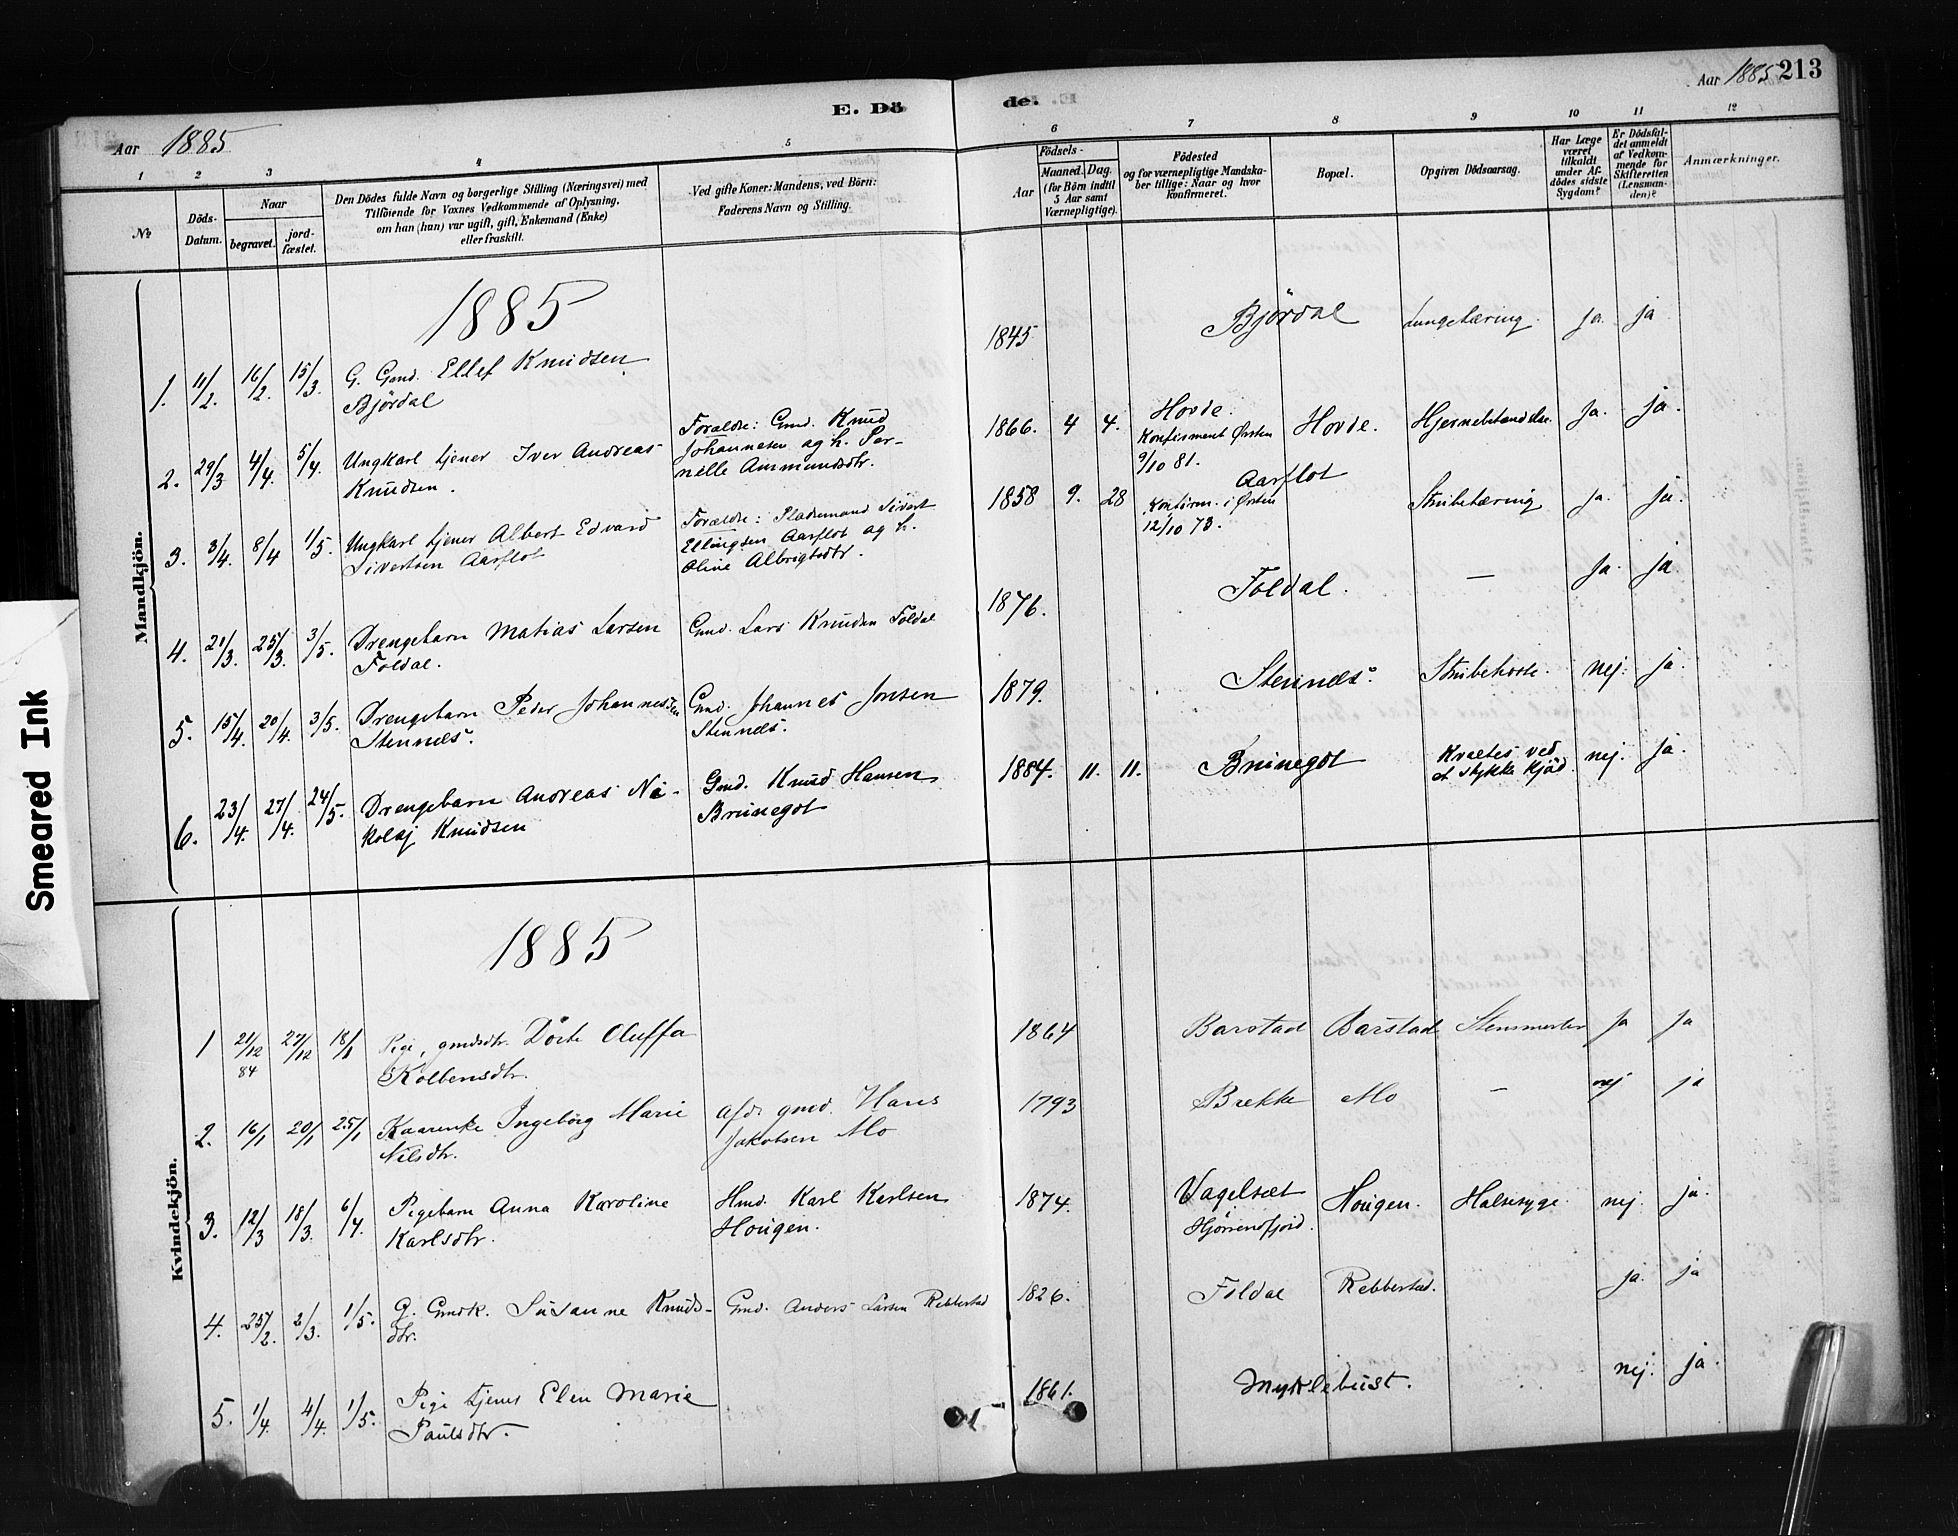 Aar 1885 213
E. Döde.
Aar 1885
1 2 3 4 5 6 7 8 9 10 11 12
№
Döds-Datum.
Naar
begravet.
jordfæstet.
Den Dödes fulde Navn og borgerlige Stilling (Næringsvei) med
Tilföiende for Voxnes Vedkommende af Oplysning,
om han (hun) var ugift, gift, Enkemand (Enke)
eller fraskilt.
Ved gifte Koner: Mandens, ved Börn:
Faderens Navn og Stilling.
Aar
Födsels-
Maaned. Dag.
(for Börn indtil
5 Aar samt
Værnepligtige).
Födested
og for værnepligtige Mandskaber
tillige: Naar og hvor
konfirmeret.
Bopæl.
Opgiven Dödsaarsag.
Har Læge
været
tilkaldt
under Afdödes
sidste
Sygdom?
Er Dödsfaldet
anmeldt
af Vedkommende
for
Skifteretten
(Lensmanden)?
Anmærkninger.
Mandkjön.
1885
1. 11/2. 16/2. 15/3. G. Gmd. Ellef Knudsen
Björdal
1845 Björdal Lungetæring. ja. ja
2. 29/3 4/4. 5/4. Ungkarl tjener Iver Andreas
Knudsen.
Forældre: Gmd. Knud
Johannesen og h. Pernille
Ammundsdtr.
1866. 4 4. Hovde.
Konfirmeret Örsten
9/10 81.
Hovde. Hjernebetændelse. Ja. ja.
3. 3/4. 8/4 1/5. Ungkarl tjener Albert Edvard
Sivertsen Aarflot
Forældre: Pladsmand Sivert
Ellingsen Aarflot og h.
Oline Albrigtsdtr.
1858 9. 28 Aarflot
Konfirm. i Örsten
12/10 73.
Strubetæring ja. ja.
4. 21/3. 25/3. 3/5. Drengebarn Matias Larsen
Foldal.
Gmd. Lars Knudsen Foldal
1876. Foldal. — Ja. ja
5. 15/4. 20/4. 3/5. Drengebarn Peder Johannessen
Stennes.
Gmd. Johannes Jonsen
Stennes.
1879. Stennes. Strubehoste. nej. ja.
6. 23/4. 27/4. 24/5. Drengebarn Andreas Nikolaj
Knudsen
Gmd. Knud Hansen
Brunegot
1884. 11. 11. Brunegot Kvaltes ved
et stykke Kjöd. nej. ja.
Kvindekjön.
1885
1 21/12 84 27/12 18/1 Pige, gmdsdtr. Dorte Oluffa
Kolbensdtr.
1864 Barstad Barstad ja ja
2. 16/1 20/1 25/1 Kaarenke Ingeborg Marie
Nilsdtr.
Afd. gmd. Hans
Jakobsen Mo
1793 Brekke Mo — nej ja
3. 12/3 18/3. 6/4. Pigebarn Anna Karoline
Karlsdtr.
Hmd. Karl Karlsen
Hougen.
1874. Vagelsæt
Hjörrendfjord.
Hougen. Halssyge. nej. ja.
4. 25/2. 2/3. 1/5. G. Gmdk. Susanne Knudsdtr.
Gmd. Anders Larsen Rebbestad
1826. Foldal Rebbestad. ja. ja
5. 1/4. 4/4. 1/5. Pige tjener Elen Marie
Paulsdtr.
1861. Myklebust. nej. ja.
Smeared Ink